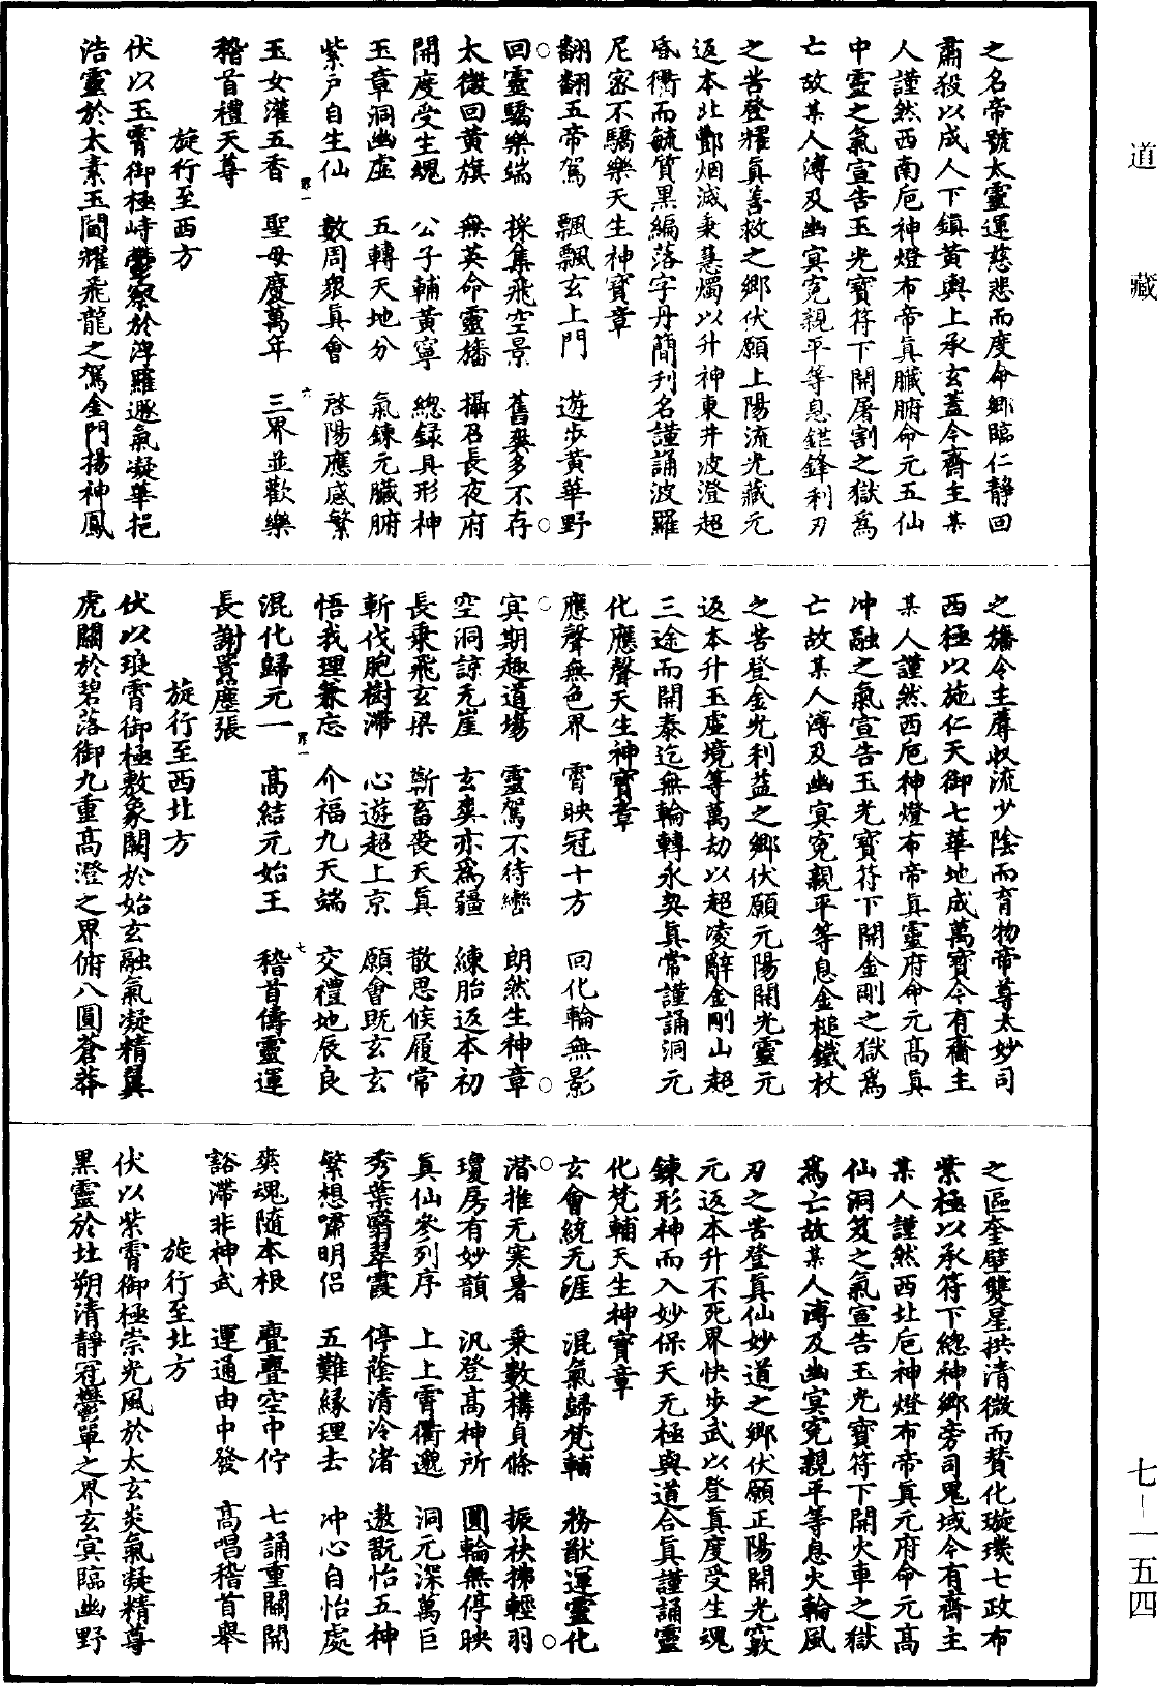 道藏
七—一五四
之名帝號太靈運慈悲而度命鄉臨仁靜回
肅殺以成人下鎮黃輿上承玄蓋今齋主某
人謹然西南巵神燈布帝真臟腑命元五仙
中靈之氣宣告玉光寶符下開屠割之獄爲
亡故某人溥及幽冥寃親平等息鋩鋒利刃
之苦登耀真善救之鄉伏願上陽流光藏元
返本北酆烟滅秉慧燭以升神東井波澄超
昏衢而毓質黑編落字丹簡刋名謹誦波羅
尼宻不驕樂天生神寶章
翻翻五帝駕　飄飄玄上門　遊步黃華野
回靈驕樂端　採集飛空景　舊爽多不存
太微回黃旗　無英命靈旛　攝召長夜府
開度受生魂　公子輔黃寧　總録具形神
玉章洞幽虛　五轉天地分　氣鍊元臟腑
紫戶自生仙　數周衆真會　啓陽應感繁
玉女灌五香　聖母慶萬年　三界並歡樂
稽首禮天尊
旋行至西方
伏以玉霄御極峙臺察於浮羅遯氣凝華挹
浩靈於太素玉閶耀飛龍之駕金門揚神鳳
之旛令主蓐收流少陰而育物帝尊太妙司
西極以施仁天御七華地成萬寶今有齋主
某人謹然西巵神燈布帝真靈府命元高真
冲融之氣宣告玉光寶符下開金剛之獄爲
亡故某人溥及幽冥寃親平等息金槌鐵杖
之苦登金光利益之鄉伏願元陽開光靈元
返本升玉虛境等萬劫以超凌辭金剛山超
三途而開泰迄無輪轉永契真常謹誦洞元
化應聲天生神寶章
應聲無色界　霄映冠十方　回化輪無影
冥期趣道塲　靈駕不待轡　朗然生神章
空洞諒无崖　玄爽亦爲疆　練胎返本初
長乘飛玄梁　斬畜喪天真　散思候履常
斬伐胞樹滯　心遊超上京　願會既玄玄
悟我理兼忘　介福九天端　交禮地辰良
混化歸元一　高結元始王　稽首儔靈運
長謝囂塵張
旋行至西北方
伏以琅霄御極敷象闕於始玄融氣凝精翼
虎關於碧落御九重高澄之界俯八圓蒼莽
之區奎壁雙星拱清微而賛化璇璣七政布
紫極以承符下總神鄉旁司鬼域今有齋主
某人謹然西北巵神燈布帝真元府命元高
仙洞笈之氣宣告玉光寶符下開火車之獄
爲亡故某人溥及幽冥寃親平等息火輪風
刃之苦登真仙妙道之鄉伏願正陽開光竅
元返本升不死界快步武以登真度受生魂
鍊形神而入妙保天无極與道合真謹誦靈
化梵輔天生神寶章
玄會統无涯　混氣歸梵輔　務猷運靈化
潜推无寒暑　乘數構真條　振袂拂輕羽
瓊房有妙韻　汎登高神所　圓輪無停映
真仙參列序　上上霄衢邈　洞元深萬巨
秀葉翳翠霞　停蔭清泠渚　遨翫怡五神
繁想嘯明侶　五難緣理去　冲心自怡處
爽魂隨本根　亹亹空中佇　七誦重關開
豁滯非神武　運通由中發　高唱稽首舉
旋行至北方
伏以紫霄御極崇光風於太玄炎氣凝精尊
黑靈於北朔清靜冠鬱單之界玄冥臨幽野